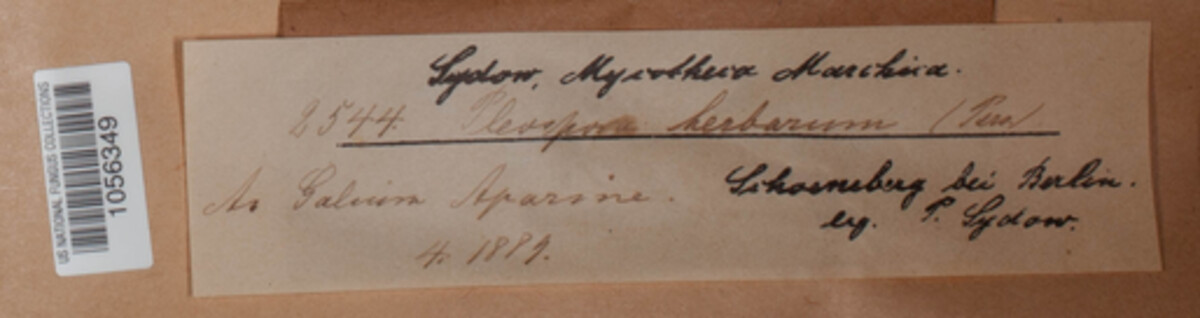 US NATIONAL FUNGUS COLLECTIONS
1056349
Sydow, Mycotheca Marchica.
2544. Pleospora herbarum (Pers)
An Galium Aparine.
4. 1889.
Schoeneberg bei Berlin.
leg. P. Sydow.